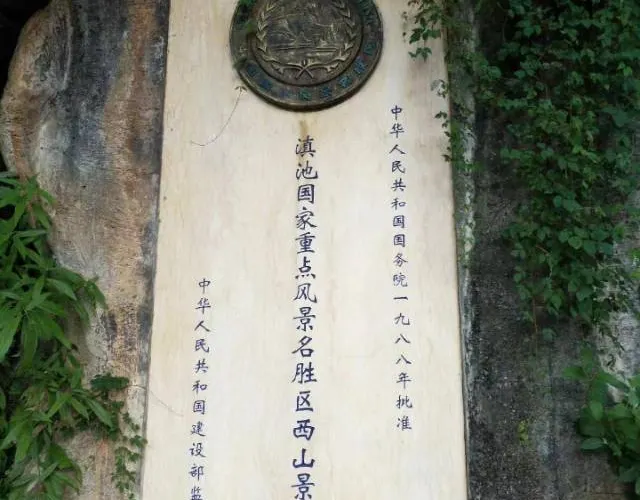 中华人民共和国国务院一九八八年批准
滇池国家重点风景名胜区西山景
中华人民共和国建设部监